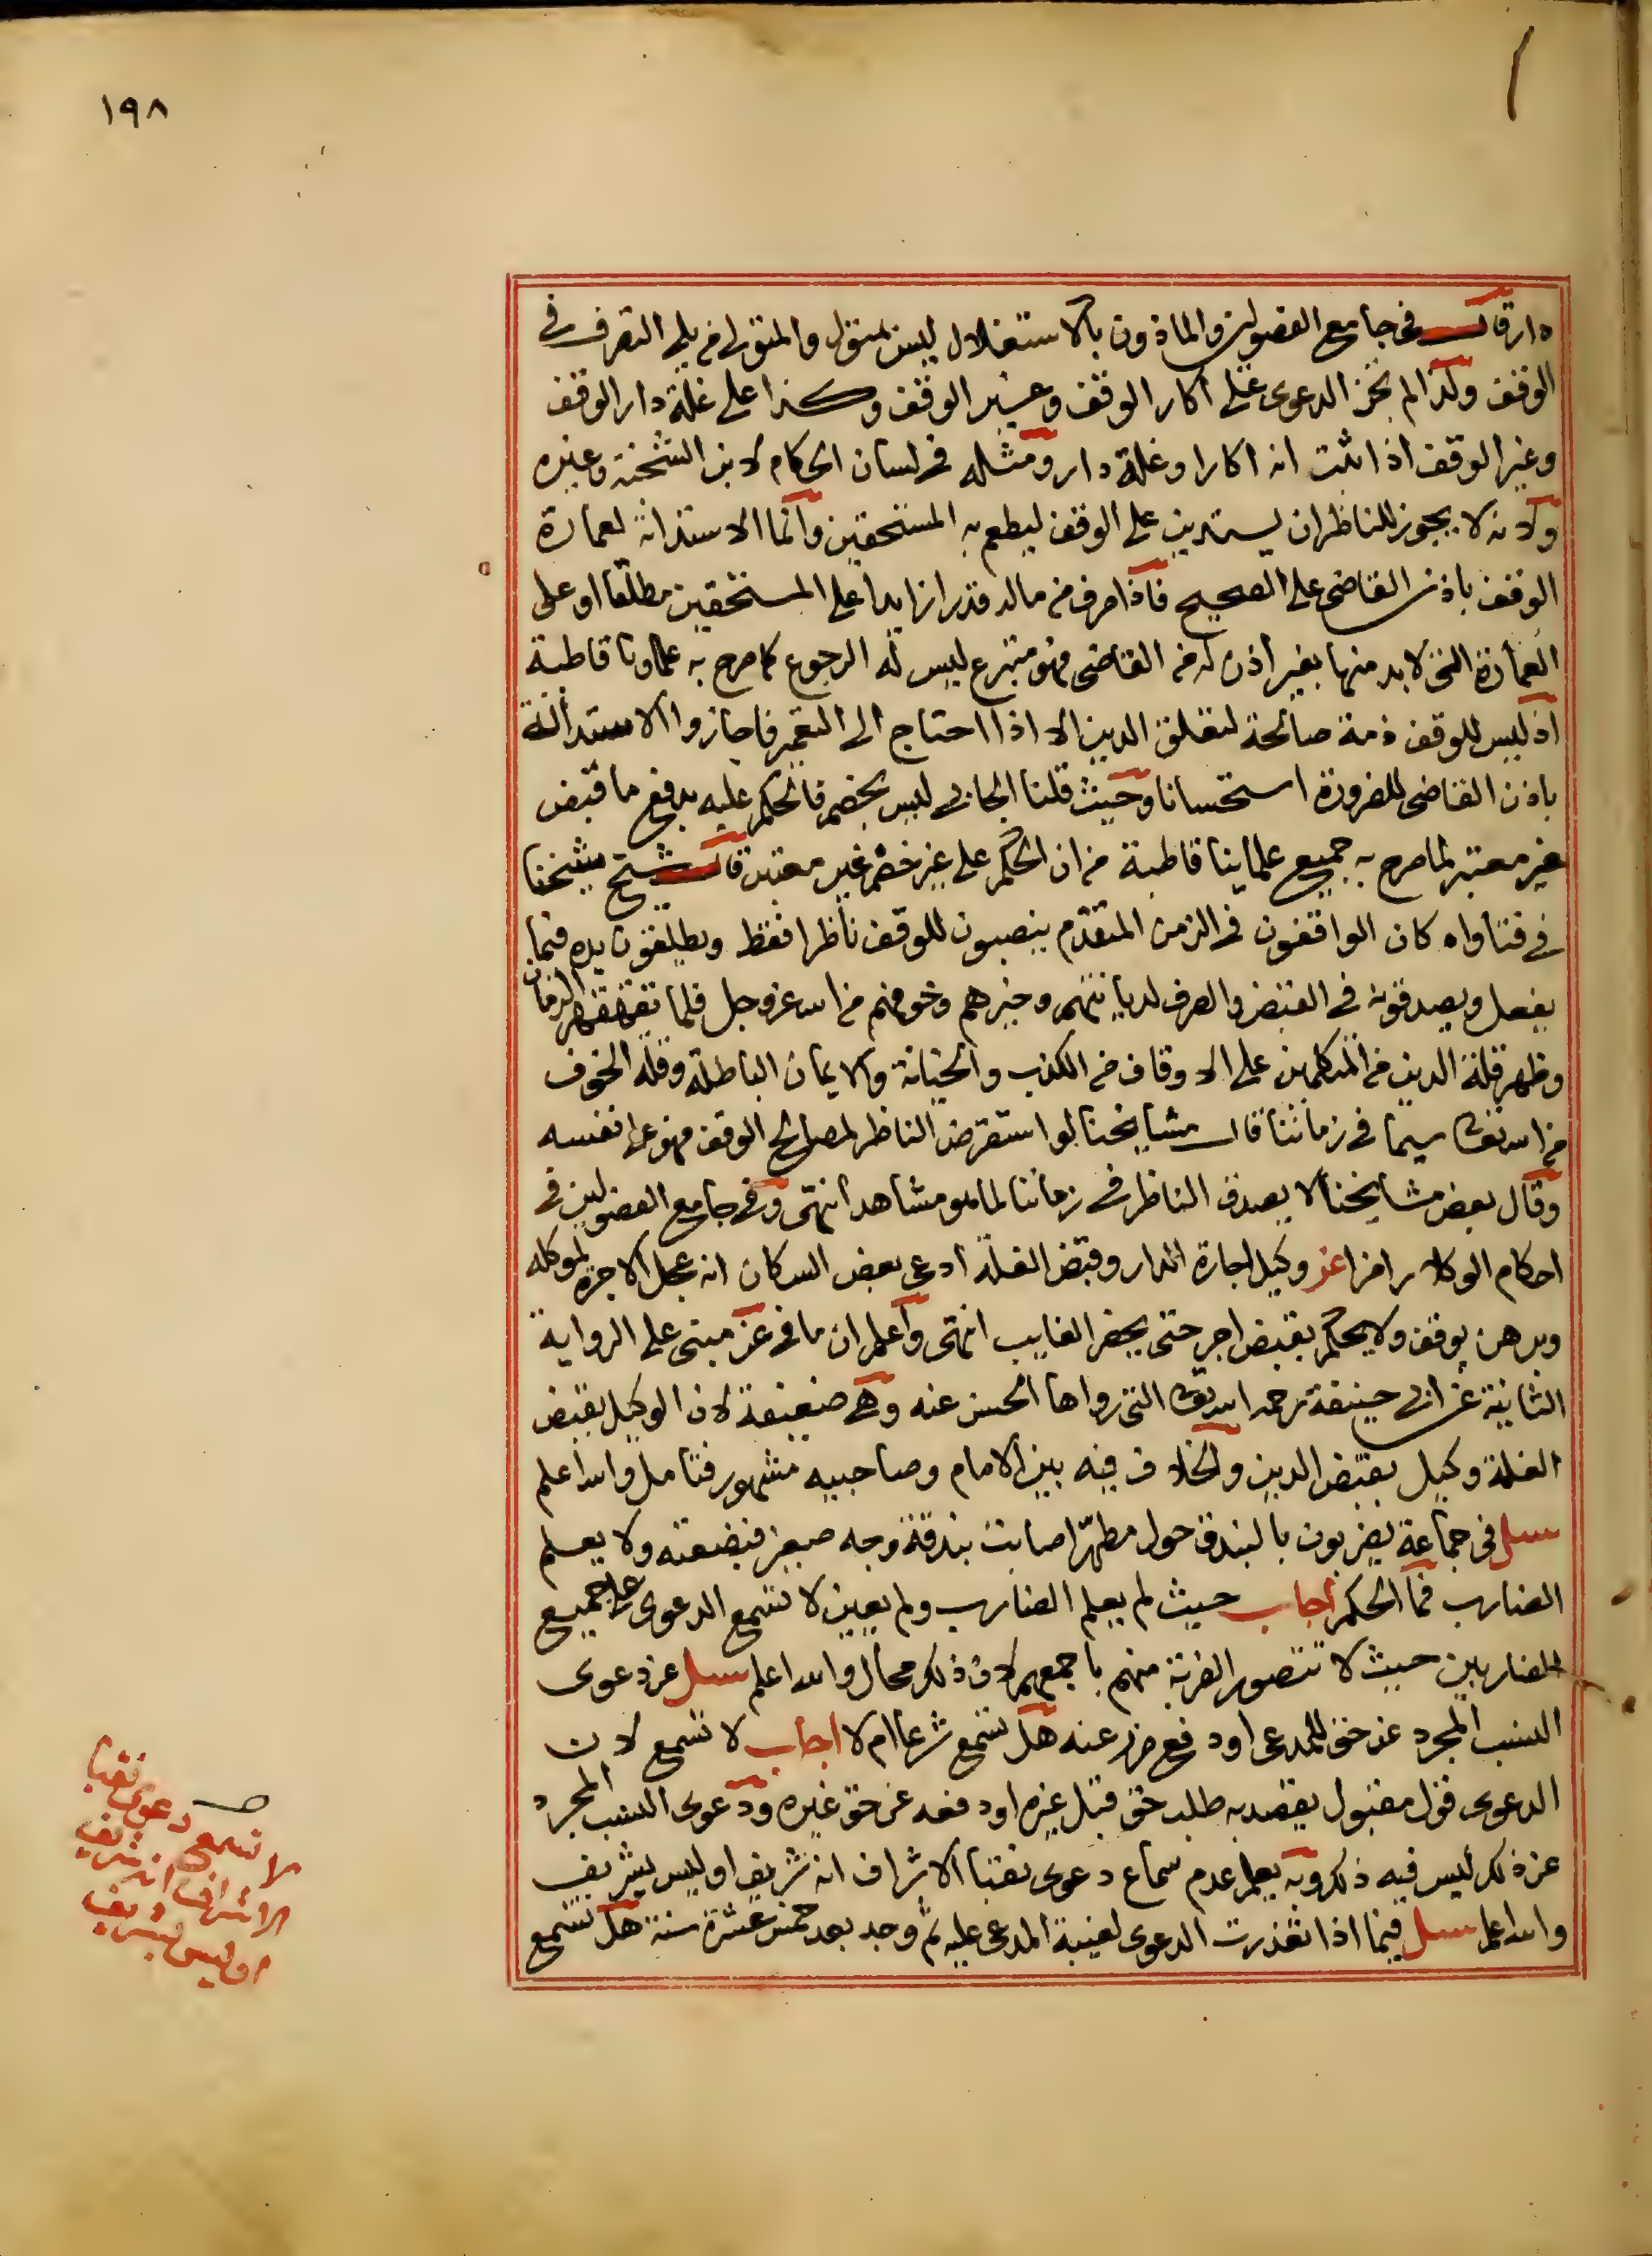 ١٩٨
دار قال في جامع الفصولين والماذون بالاستغلال ليس بمتول والمتولى من يلى التصرف في
الوقف ولذا لم تجز الدعوى على اكار الوقف وعشير الوقف وكذا على غلة دار الوقف
وغير الوقف اذا ثبت انه اكار او غلة دار ومثله في لسان الحكام لابن الشحنة وغيره
ولانه لا يجوز للناظر ان يستدين على الوقف ليطعم به المستحقين وانما الاستدانة لعمارة
الوقف باذن القاضى على الصحيح فاذا صرف من ماله قدرا زايدا على المستحقين مطلقا او على
العمارة التى لابد منها بغير اذن له من القاضى فهو متبرع ليس له الرجوع كما صرح به علماونا قاطبة
اذ ليس للوقف ذمة صالحة لتعلق الدين الا اذا احتاج الى التعمير فاجازوا الاستدانة
باذن القاضى للضرورة استحسانا وحيث قلنا الجابي ليس بخصم فالحكم عليه بدفع ما قبض
غير معتبر لما صرح به جميع علماينا قاطبة من ان الحكم على غير خصم غير معتبر قال شيخ شيخنا
في فتاواه كان الواقفون في الزمن المتقدم ينصبون للوقف ناظرا فقط ويطلقون يده فيما
يفعل ويصدقونه في القبض والصرف لديانتهم وخيرهم وخوفهم من الله عز وجل فلما تقهقهر الزمان
وظهر قلة الدين من المتكلمين على الاوقاف من الكذب والخيانة والايمان الباطلة وقلة الخوف
من الله تعالى سيما في زماننا قال مشايخنا لو استقرض الناظر لمصالح الوقف فهو على نفسه
وقال بعض مشايخنا لا يصدق الناظر في زماننا لما هو مشاهد انتهى وفي جامع الفصولين في
احكام الوكلا رامزا عز وكيل اجارة الدار وقبض الغلة ادعى بعض السكان انه عجل الاجرة لموكله
وبرهن يوقف ولا يحكم بقبض اجر حتى يحضر الغايب انتهى واعلم ان ما في عز مبنى على الرواية
الثانية عن ابي حنيفة رحمه الله تعالى التى رواها الحسن عنه وهي ضعيفة لان الوكيل بقبض
الغلة وكيل بقبض الدين والخلاف فيه بين الامام وصاحبيه مشهور فتامل والله اعلم
سيل في جماعة يضربون بالبندق حول مطهر اصابت بندقة وجه صغير فبضعته ولا يعلم
الضارب فما الحكم اجاب حيث لم يعلم الضارب ولم يعين لا تسمع الدعوى على جميع
الضاربين حيث لا تتصور الضربة منهم باجمعهم لان ذلك محال والله اعلم سيل عن دعوى
النسب المجرد عن حق للمدعى او دفع ضرر عنه هل تسمع شرعا ام لا اجاب لا تسمع لان
الدعوى قول مقبول يقصد به طلب حق قبل غيره او دفعه عن حق غيره ودعوى النسب المجرد
عن ذلك ليس فيه ذلك وبه يعلم عدم سماع دعوى نقبا الاشراف انه شريف او ليس بشريف
والله اعلم سيل فيما اذا تعذرت الدعوى لغيبة المدعى عليه ثم وجد بعد خمس عشرة سنة هل تسمع
لا تسمع دعوى نقبا
الاشراف انه شريف
او ليس بشريف